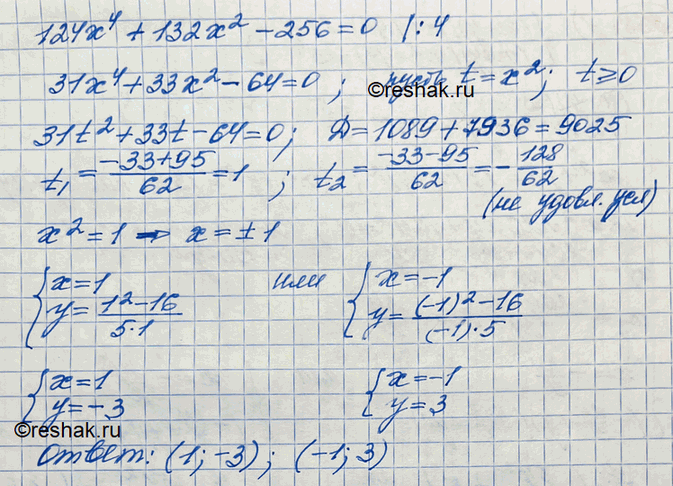 124x⁴ + 132x² - 256 = 0 |: 4
31x⁴ + 33x² - 64 = 0 ; пусть t = x²; t ≥ 0
©reshak.ru
31t² + 33t - 64 = 0; D = 1089 + 7936 = 9025
t₁ = (-33+95)/62 = 1 ; t₂ = (-33-95)/62 = -128/62
(не удовл. усл)
x² = 1 → x = ±1
{x = 1 или {x = -1
y = (1² - 16)/(5·1) y = ((-1)² - 16)/((-1)·5)
{x = 1 {x = -1
y = -3 y = 3
©reshak.ru
Ответ: (1; -3); (-1; 3)